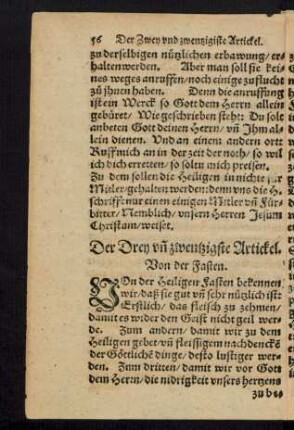 56 Der Zwey vnd zwentzigiste Artickel.
zu derselbigen nützlichen erbawung/ er-
halten werden. Aber man soll sie kei-
nes weges anruffen/ noch einige zuflucht
zů jhnen haben. Denn die anruffung
ist ein Werck so Gott dem Herrn allein
gebüret/ Wie geschrieben steht: Du solt
anbeten Gott deinen Herrn/ vñ Jhm al-
lein dienen. Vnd an einem andern ortt
Ruff mich an in der zeit der noth/ so wil
ich dich erretten/ so soltu mich preisen.
Zu dem sollen die Heiligen in nichte für
Mitler/ gehalten werden: denn vns die H.
schrifft nur einen einigen Mitler vñ Für-
bitter/ Nemblich/ vnsern Herren Jesum
Christum/ weiset.
Der Drey vñ zwentzigste Artickel.
Von der Fasten.
VOn der Heiligen Fasten bekennen
wir/ daß sie gut vñ sehr nützlich ist:
Erstlich/ das fleisch zu zehmen/
damit es wider den Geist nicht geil wer-
de. Zum andern/ damit wir zu dem
Heiligen gebet/ vñ fleissigem nachdenckē
der Göttlichē dinge/ desto lustiger wer-
den. Zum dritten/ damit wir vor Gott
dem Herrn/ die nidrigkeit vnsers hertzens
zu be-